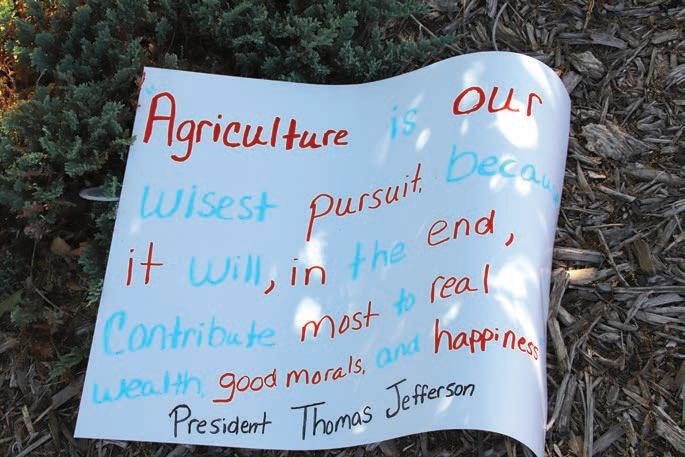 "Agriculture is our
wisest pursuit, because
it will, in the end,
Contribute most to real
wealth, good morals, and happiness
President Thomas Jefferson